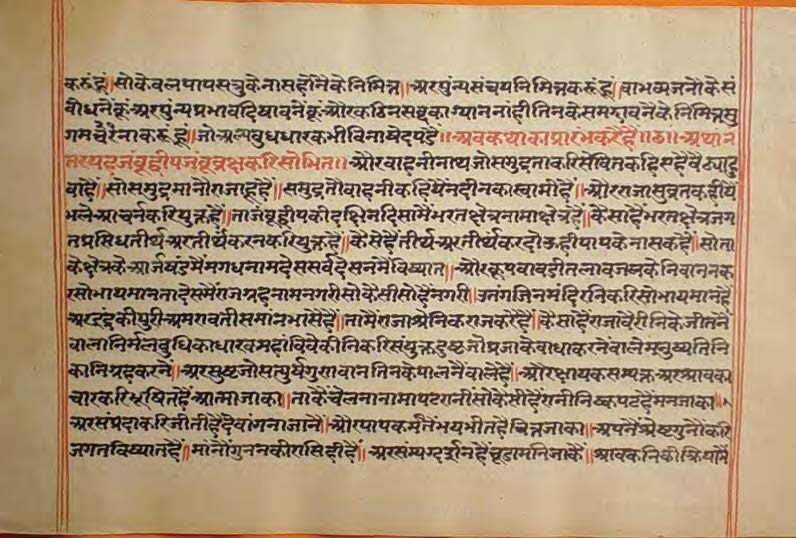 करुंहूं॥सोकेवलपापसत्रुकेनासहोनैकेनिमित्त॥अरपुंन्यसंचयनिमित्तकरुंहूं॥वाभव्यजनौकेसं
बोधनेकूंअरपुंन्यप्रभावदिषावनेकूंओरकठिनसब्दकाग्याननांहीतिनकेसमझावनैकेनिमित्तसु
गमचरित्रनाकरुहूं॥जोअल्पबुधधारकभीविनाषेदपढै॥अबकथाकाप्रारंभकरैहै॥ठ॥अथानं
तरयहजंबूद्वीपजंबूव्रक्षकरिसोभित॥ओरवाहनीनाथजोसमुद्रताकरिसेवितकहिएहैवेढ्याहु
वाहै॥सोसमुद्रमानोराजाहूहै॥समुद्रतौवाहनीकहियेनदीनकास्वामीहै॥ओरराजासुव्रतकहीये
भलेआचर्नकरियुक्तहै॥ताजंबूद्वीपकीदक्षिनदिसामैंभरतक्षेत्रनामाक्षेत्रहै॥कैसाहैभरतक्षेत्रजग
तप्रसिधतीर्थअरतीर्थकरनकरियुक्तहै॥कैसेहैतीर्थअरतीर्थकरदोऊहीपापकेनासकहै॥सोता
केक्षेत्रकेआर्जषंडमैंमगधनामदेससर्वदेसनमैंविख्यात॥ओरकूपवावडीतलावजलकेनिवाननक
रसोभायमानतादेसमैंराजग्रहनामनगरीसोकैसीसोहैनगरी॥उतंगजिनमंदिरनिकरिसोभायमानहै
अरइंद्रकीपुरीअमरावतीसमानभासैहै॥तामैंराजाश्रेनिकराजकरैहै॥कैसाहैराजावैरीनिकेजीतनै
वालानिर्मलबुधिकाधारकमहांविवेकीनिकरिसंयुक्तदुष्टजोप्रजाकेवाधाकरनेवालेमनुष्यतिनि
कानिग्रहकरनै॥अरसुष्टजोसत्पुर्षगुरावानतिनकेपालनैवालेहै॥ओरक्षायकसम्यक्तअरश्रावका
चारकरिभूषितहैआत्माजाका॥ताकैचेलनानामापटरानीसोकैसीहैरानीनिष्कपटहैमनजाका॥
अरसंप्रदाकरिजीतीहैदेवांगनाजानै॥ओरपापकर्मनैंभयभीतहैचित्तजाका॥अपनैंश्रेष्टगुनौंकरि
जगतविष्यातहै॥मांनौंगुननकीरासिहीहै॥अरसंम्यग्दर्शनहैचूडामनिजाकै॥श्रावकनिकीक्रियामैं